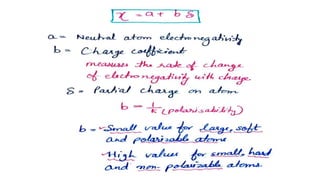 χ = a + b δ
a = Neutral atom electronegativity
b = Charge coefficient
measures the rate of change
of electronegativity with charge
δ = Partial charge on atom
b = 1/k (polarisability)
b = - Small value for large, soft
and polarisable atoms
- High values for small, hard
and non-polarisable atoms.